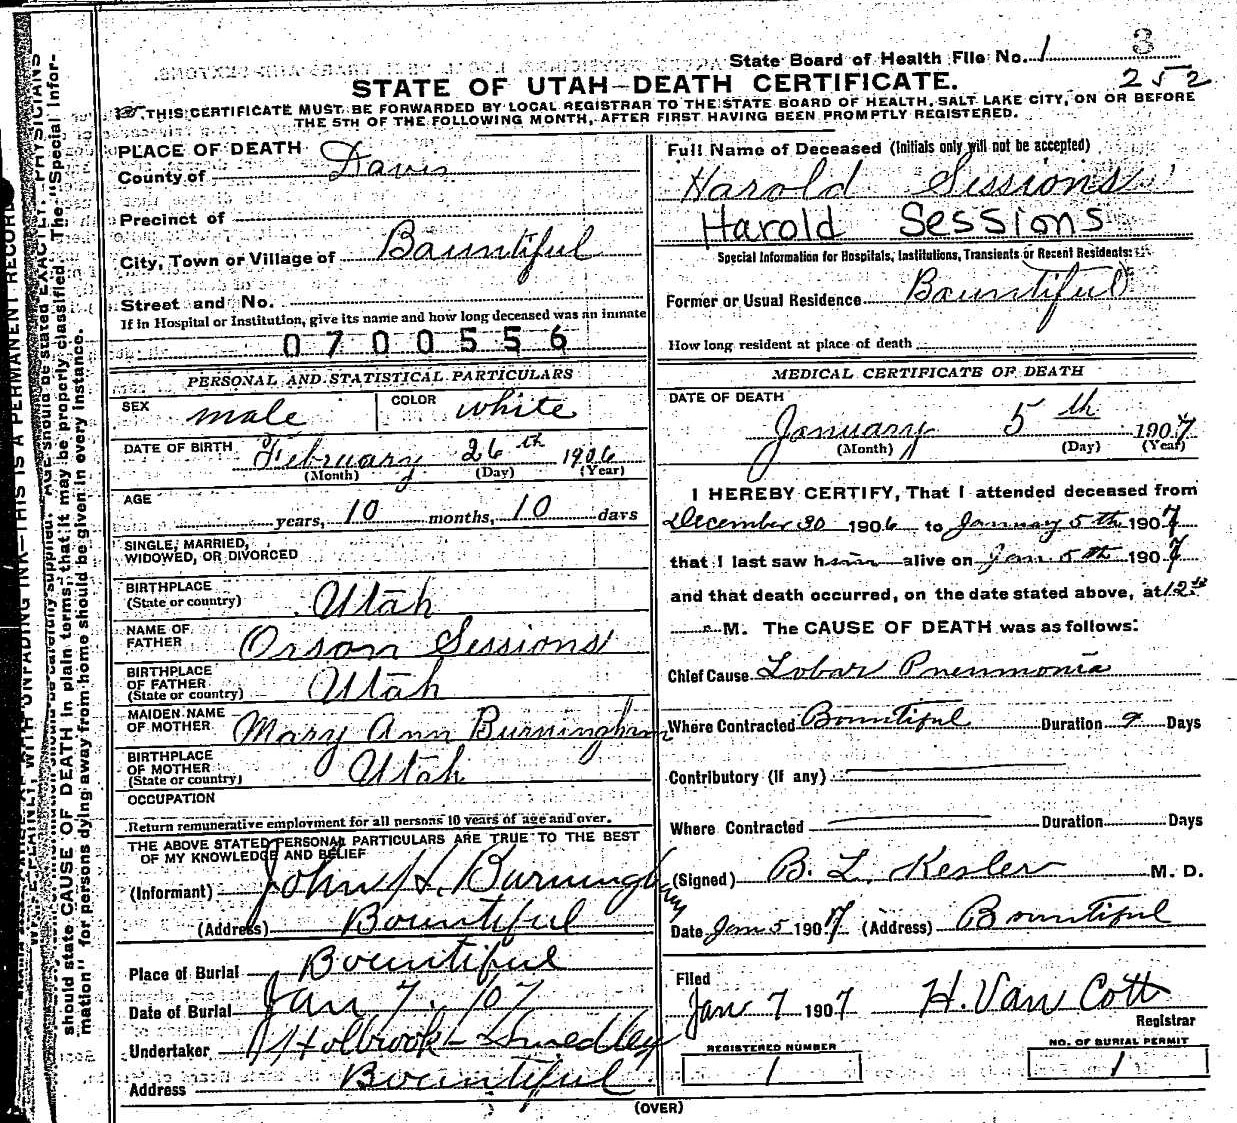 State Board of Health File No. 1 3
STATE OF UTAH—DEATH CERTIFICATE. 252
THIS CERTIFICATE MUST BE FORWARDED BY LOCAL REGISTRAR TO THE STATE BOARD OF HEALTH, SALT LAKE CITY, ON OR BEFORE
THE 5TH OF THE FOLLOWING MONTH, AFTER FIRST HAVING BEEN PROMPTLY REGISTERED.
PLACE OF DEATH
County of Davis
Precinct of
City, Town or Village of Bountiful
Street and No.
If in Hospital or Institution, give its name and how long deceased was an inmate
0700556
PERSONAL AND STATISTICAL PARTICULARS
SEX male COLOR white
DATE OF BIRTH February 26th 1906
(Month) (Day) (Year)
AGE
years, 10 months, 10 days
SINGLE, MARRIED,
WIDOWED, OR DIVORCED
BIRTHPLACE
(State or country) Utah
NAME OF
FATHER Orson Sessions
BIRTHPLACE
OF FATHER
(State or country) Utah
MAIDEN NAME
OF MOTHER Mary Ann Burningham
BIRTHPLACE
OF MOTHER
(State or country) Utah
OCCUPATION
Return remunerative employment for all persons 10 years of age and over.
THE ABOVE STATED PERSONAL PARTICULARS ARE TRUE TO THE BEST
OF MY KNOWLEDGE AND BELIEF
(Informant) John H. Burningham
(Address) Bountiful
Place of Burial Bountiful
Date of Burial Jan 7, '07
Undertaker Holbrook - Smedley
Address Bountiful
Full Name of Deceased (Initials only will not be accepted)
Harold Sessions
Harold Sessions
Special Information for Hospitals, Institutions, Transients or Recent Residents:
Former or Usual Residence Bountiful
How long resident at place of death
MEDICAL CERTIFICATE OF DEATH
DATE OF DEATH
January 5th 1907
(Month) (Day) (Year)
I HEREBY CERTIFY, That I attended deceased from
December 30 1906 to January 5th 1907
that I last saw him alive on Jan. 5th 1907
and that death occurred, on the date stated above, at 12
M. The CAUSE OF DEATH was as follows:
Chief Cause Lobar Pneumonia
Where Contracted Bountiful Duration 9 Days
Contributory (if any)
Where Contracted Duration Days
(Signed) B. L. Kesler M. D.
Date Jan 5 1907 (Address) Bountiful
Filed
Jan 7 1907 H. Van Cott
Registrar
REGISTERED NUMBER
1
NO. OF BURIAL PERMIT
1
(OVER)
should state CAUSE OF DEATH in plain terms, that it may be properly classified. The "Special Infor-
mation" for persons dying away from home should be given in every instance.